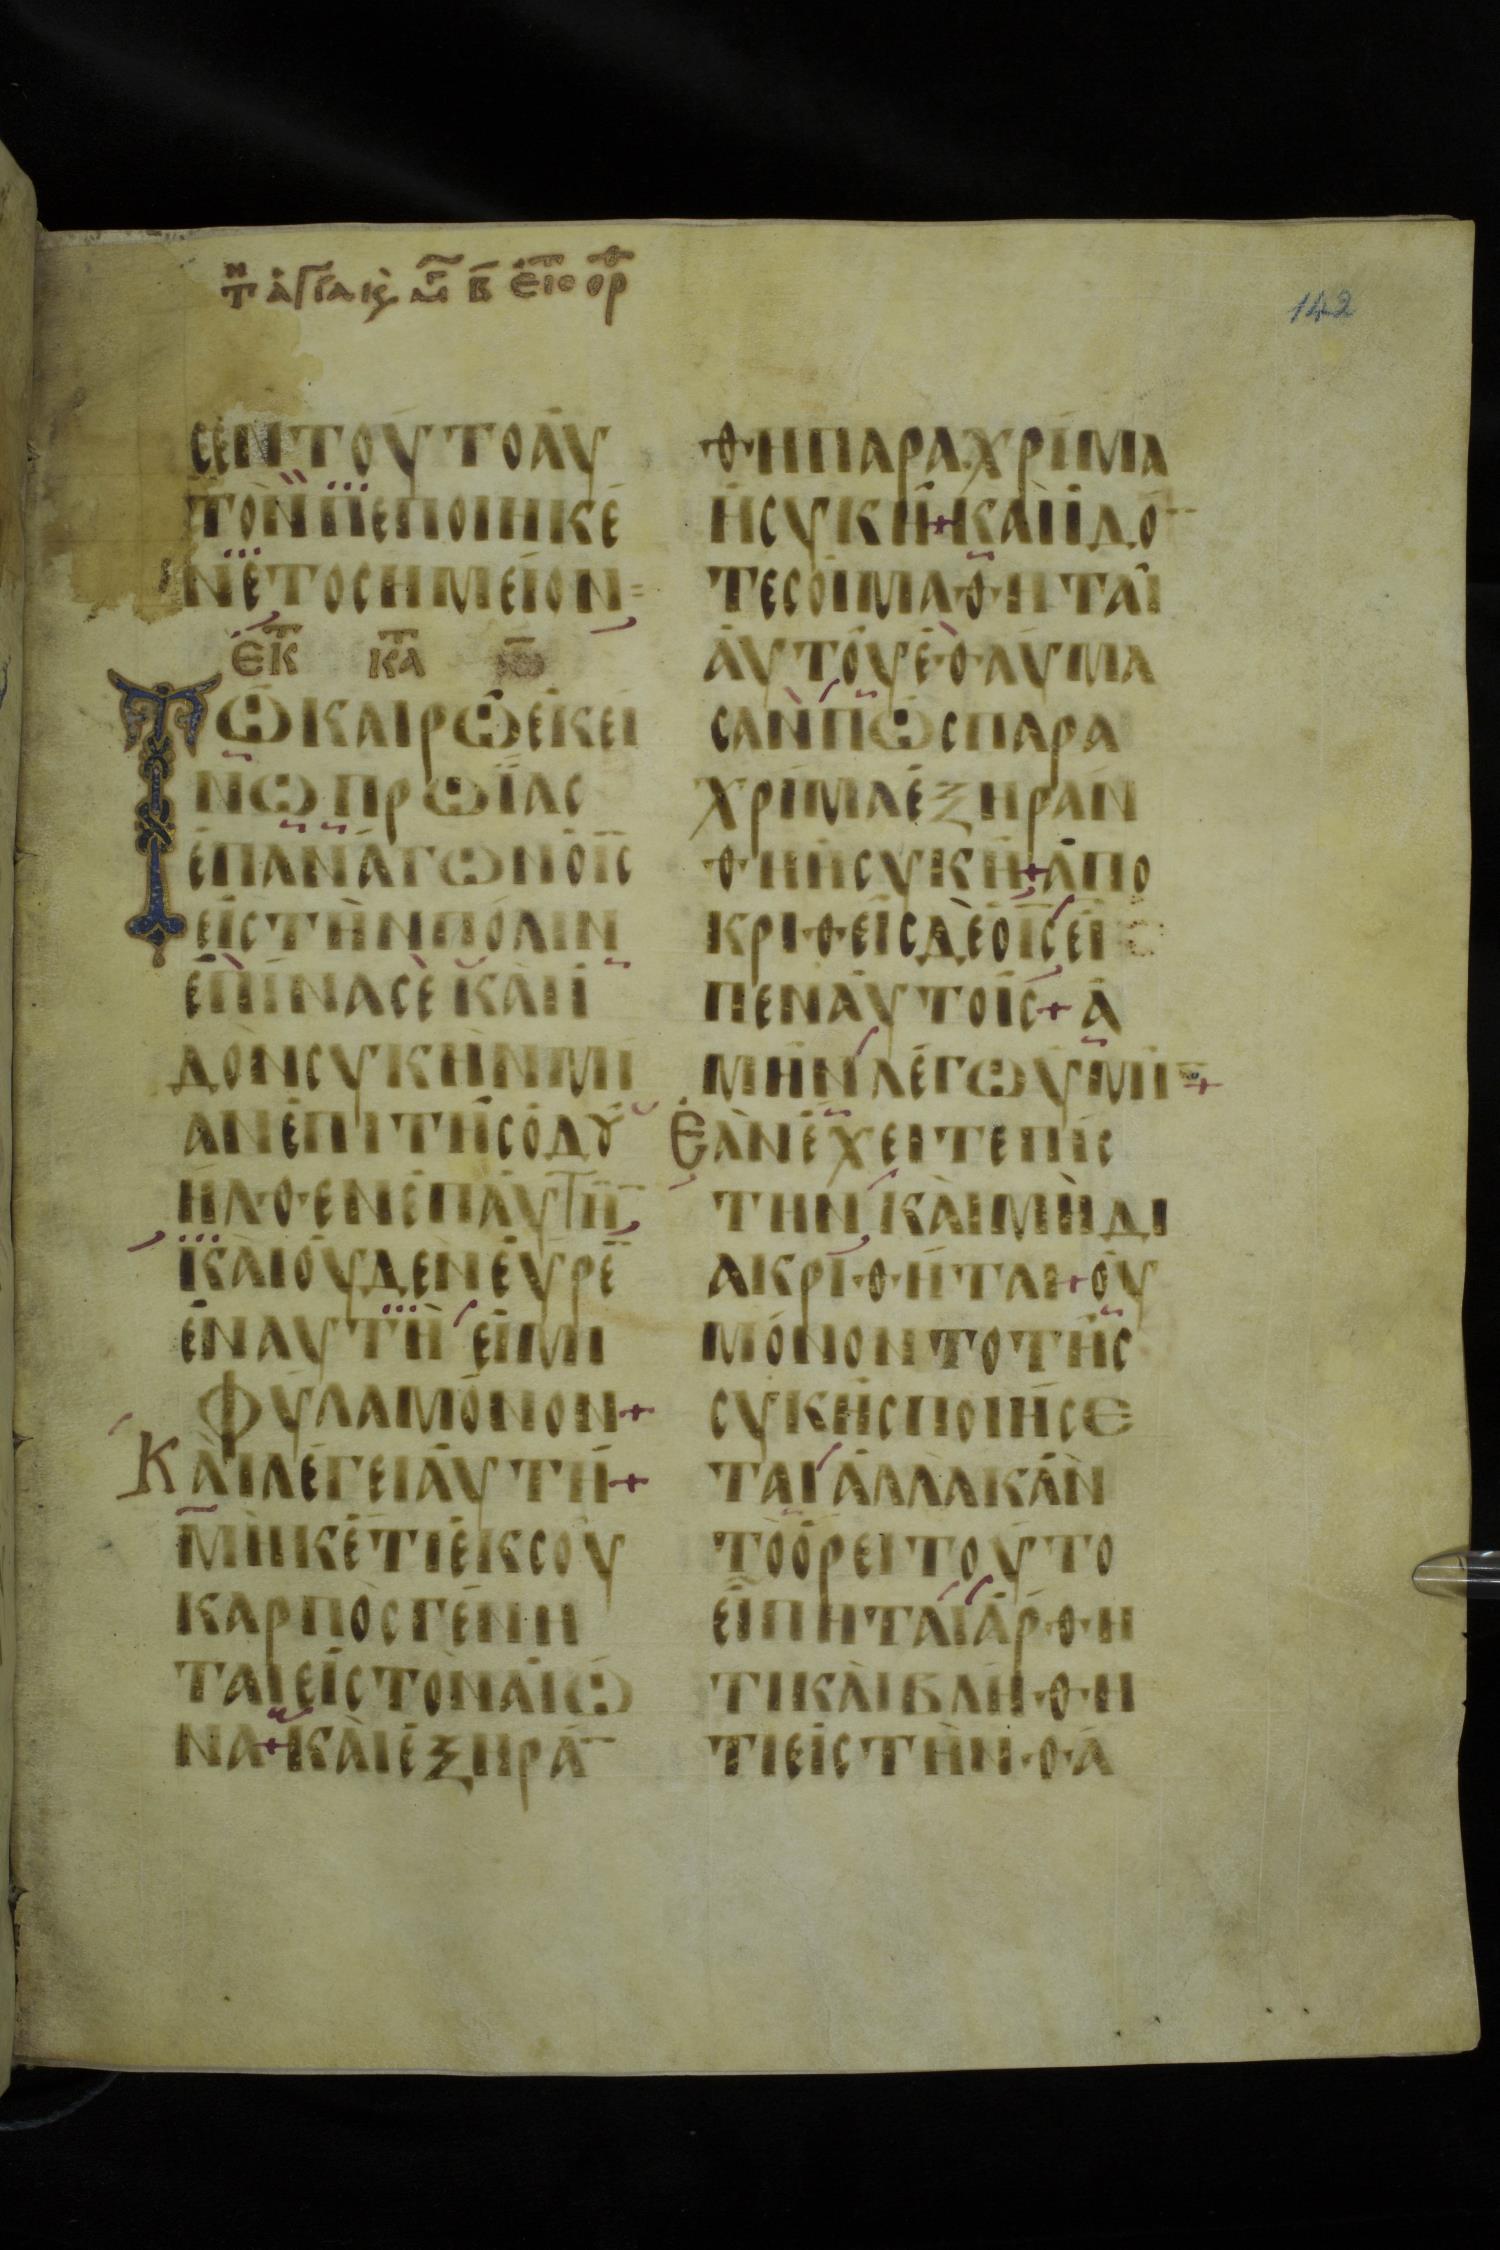 τη αγια κς μγ β εισ ορ
142
σεν τουτο αυ
τον πεποιηκε
ναι το σημειον
εκ κατ
Τω καιρω εκει
νω πρωΐας
επαναγων ο ις
εις την πολιν
επινασε και ϊ
δον συκην μι
αν επι της οδου
ηλθεν επ αυτη
και ουδεν ευρε
εν αυτη ει μι
φυλα μονον+
Και λεγει αυτη+
μηκετι εκ σου
καρπος γενη
ται εις τον αιω
να+και εξηρα
θη παραχριμα
η συκη+και ϊδο
τες οι μαθηται
αυτου εθαυμα
σαν πως παρα
χριμα εξηραν
θη η συκη+απο
κριθεις δε ο ις ει
πεν αυτοις+α
μην λεγω υμι+
Εαν εχειτε πισ
την και μη δι
ακριθηται+ου
μονον το της
συκης ποιησε
ται αλλα καν
το ορει τουτο
ειπηται αρθη
τι και βληθη
τι εις την θα